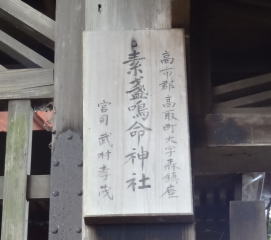 高市郡高取町大字森鎮座
素盞鳴命神社
宮司 武村孝茂